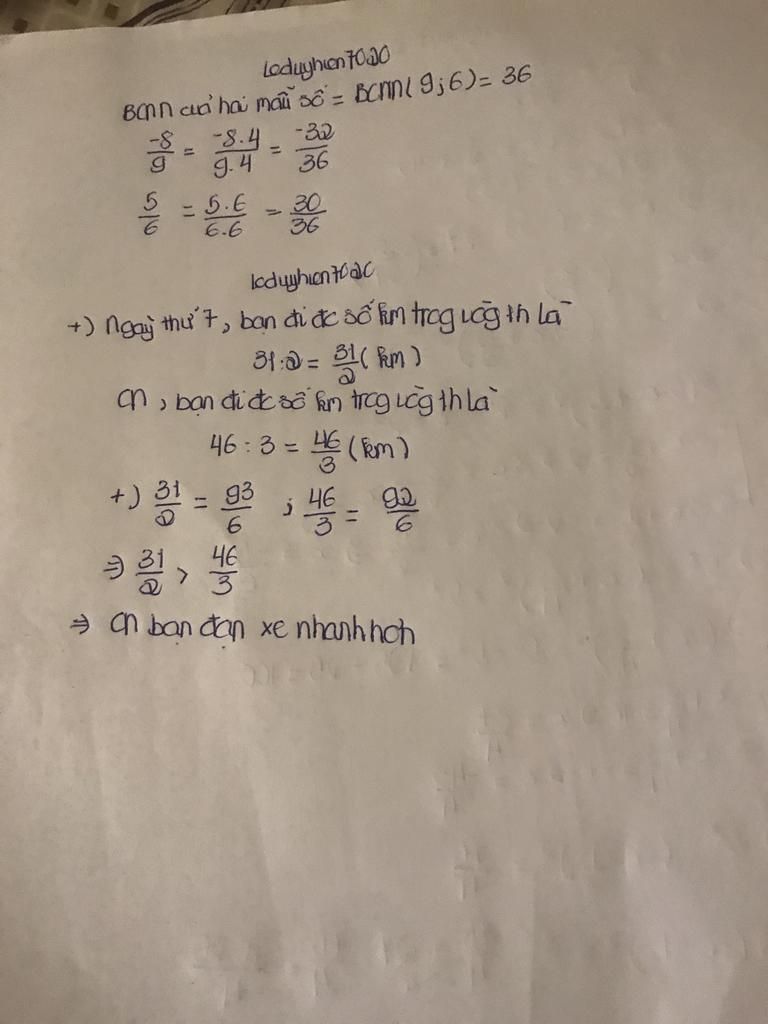 leduyhien7020
BCNN của hai mẫu số = BCNN(9;6) = 36
-8/9 = -8.4/9.4 = -32/36
5/6 = 5.6/6.6 = 30/36
leduyhien702
+) Ngày thứ 7, bạn đi đc số km trog vòg 1h là
31:2 = 31/2 (km)
CN, bạn đi đc số km trog vòg 1h là
46 : 3 = 46/3 (km)
+) 31/2 = 93/6 ; 46/3 = 92/6
⇒ 31/2 > 46/3
⇒ CN bạn đạp xe nhanh hơn